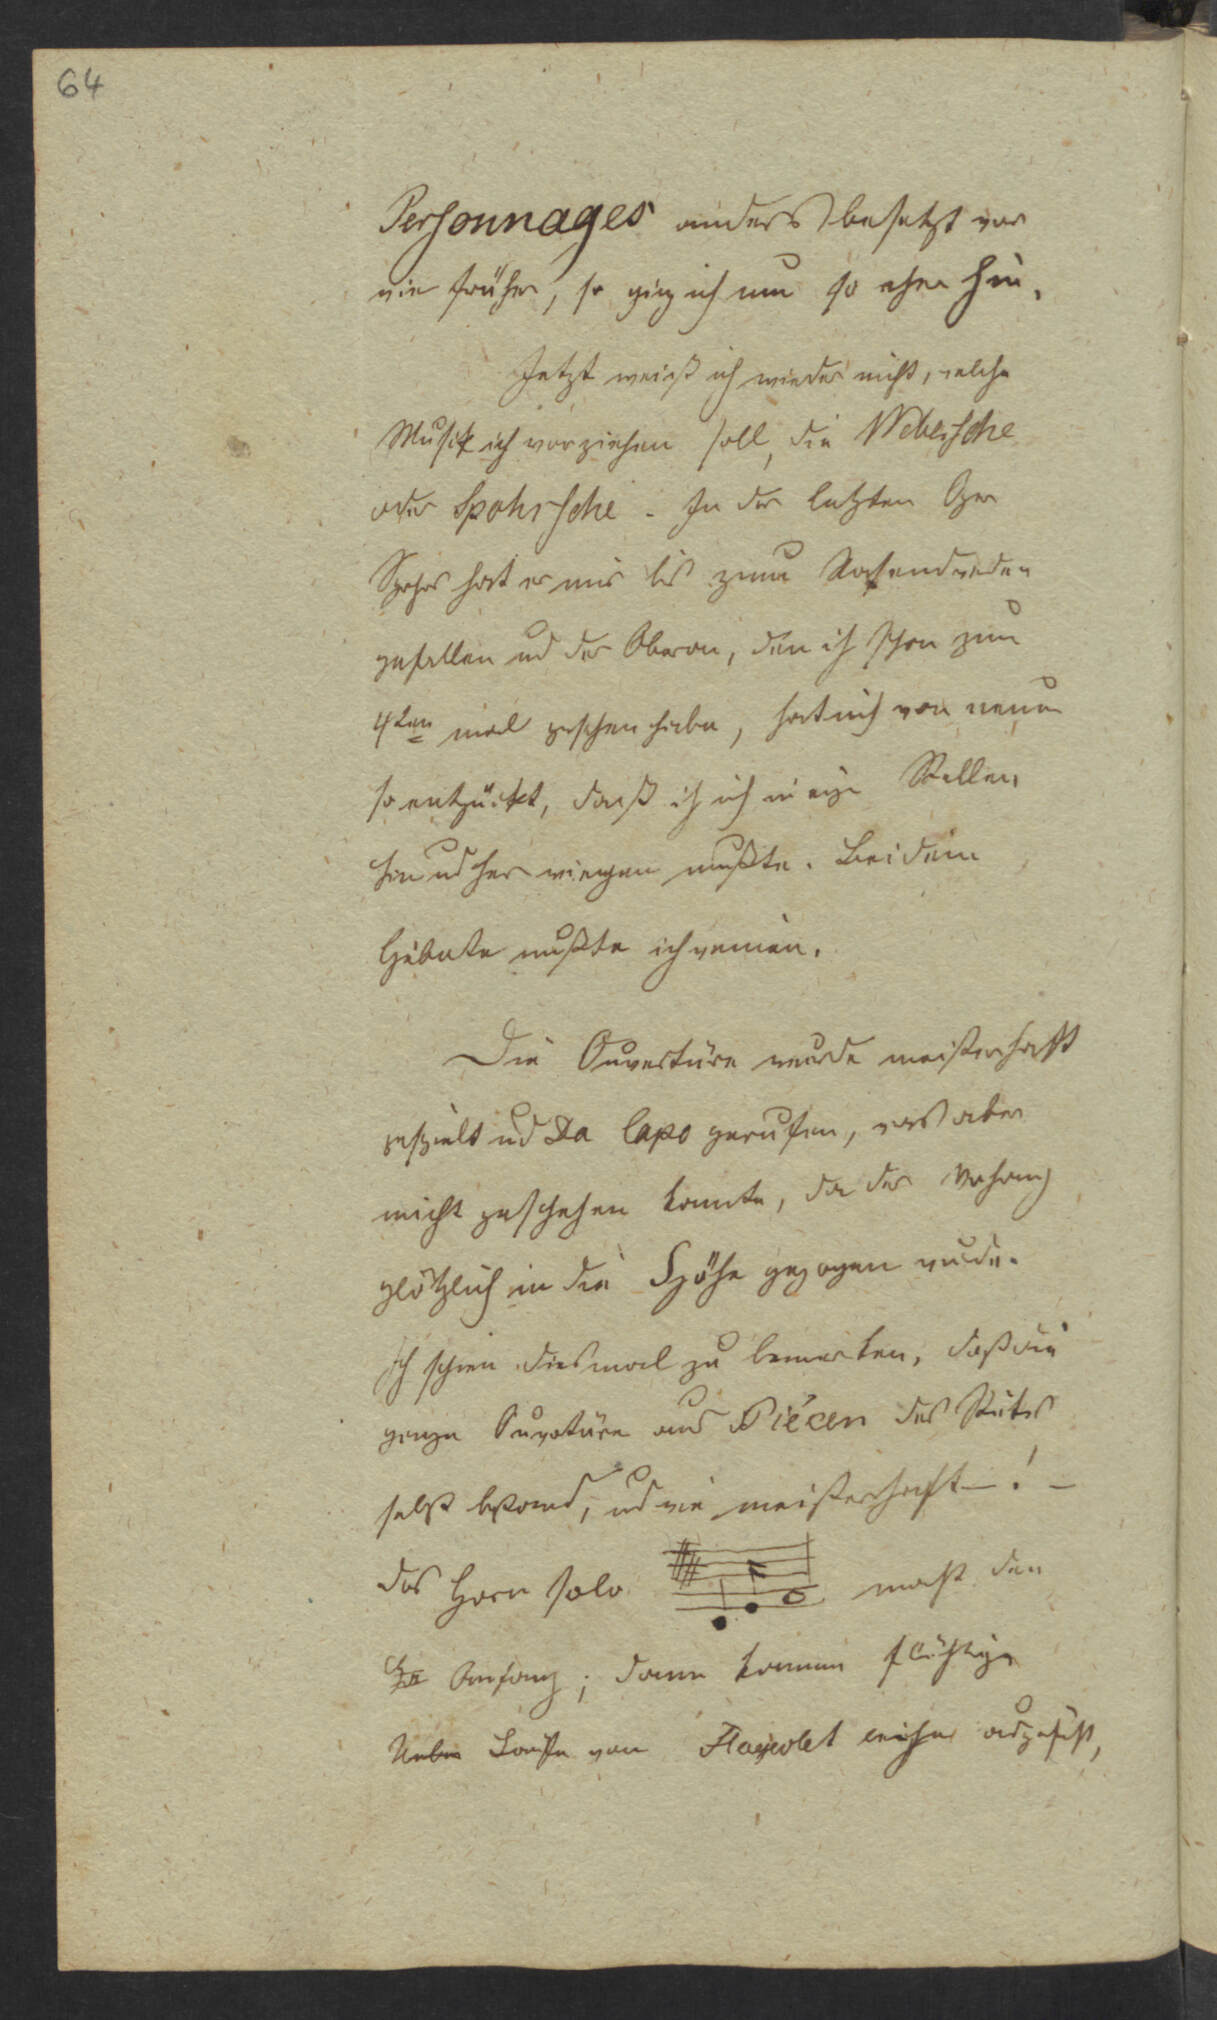 64
Personnages anders besetzt war
wie früher, so ging ich um so eher hin.
Jetzt weiß ich wieder nicht, welche
Musik ich vorziehen soll, die Webersche
oder Spohrsche. In der letzten Oper
Spohrs hat er mir bis zum Rasendwerden
gefallen und der Oberon, den ich schon zum
4ten mal gesehen habe, hat mich von neuem
so entzückt, daß ich mich einige Stellen
hin und her wiegen mußte. Bei dem
Gebete mußte ich weinen.
Die Ouvertüre wurde meisterhaft
gespielt und Da Capo gerufen, was aber
nicht geschehen konnte, da der Vorhang
plötzlich in die Höhe gezogen wurde.
Ich schien diesmal zu bemerken, daß die
ganze Ouvertüre aus Piècen des Stückes
selbst bestand, und wie meisterhaft –! –
das Horn solo macht den
Anfang; dann kommen flüchtige
Laufe von Flageolet leise ausgeführt,